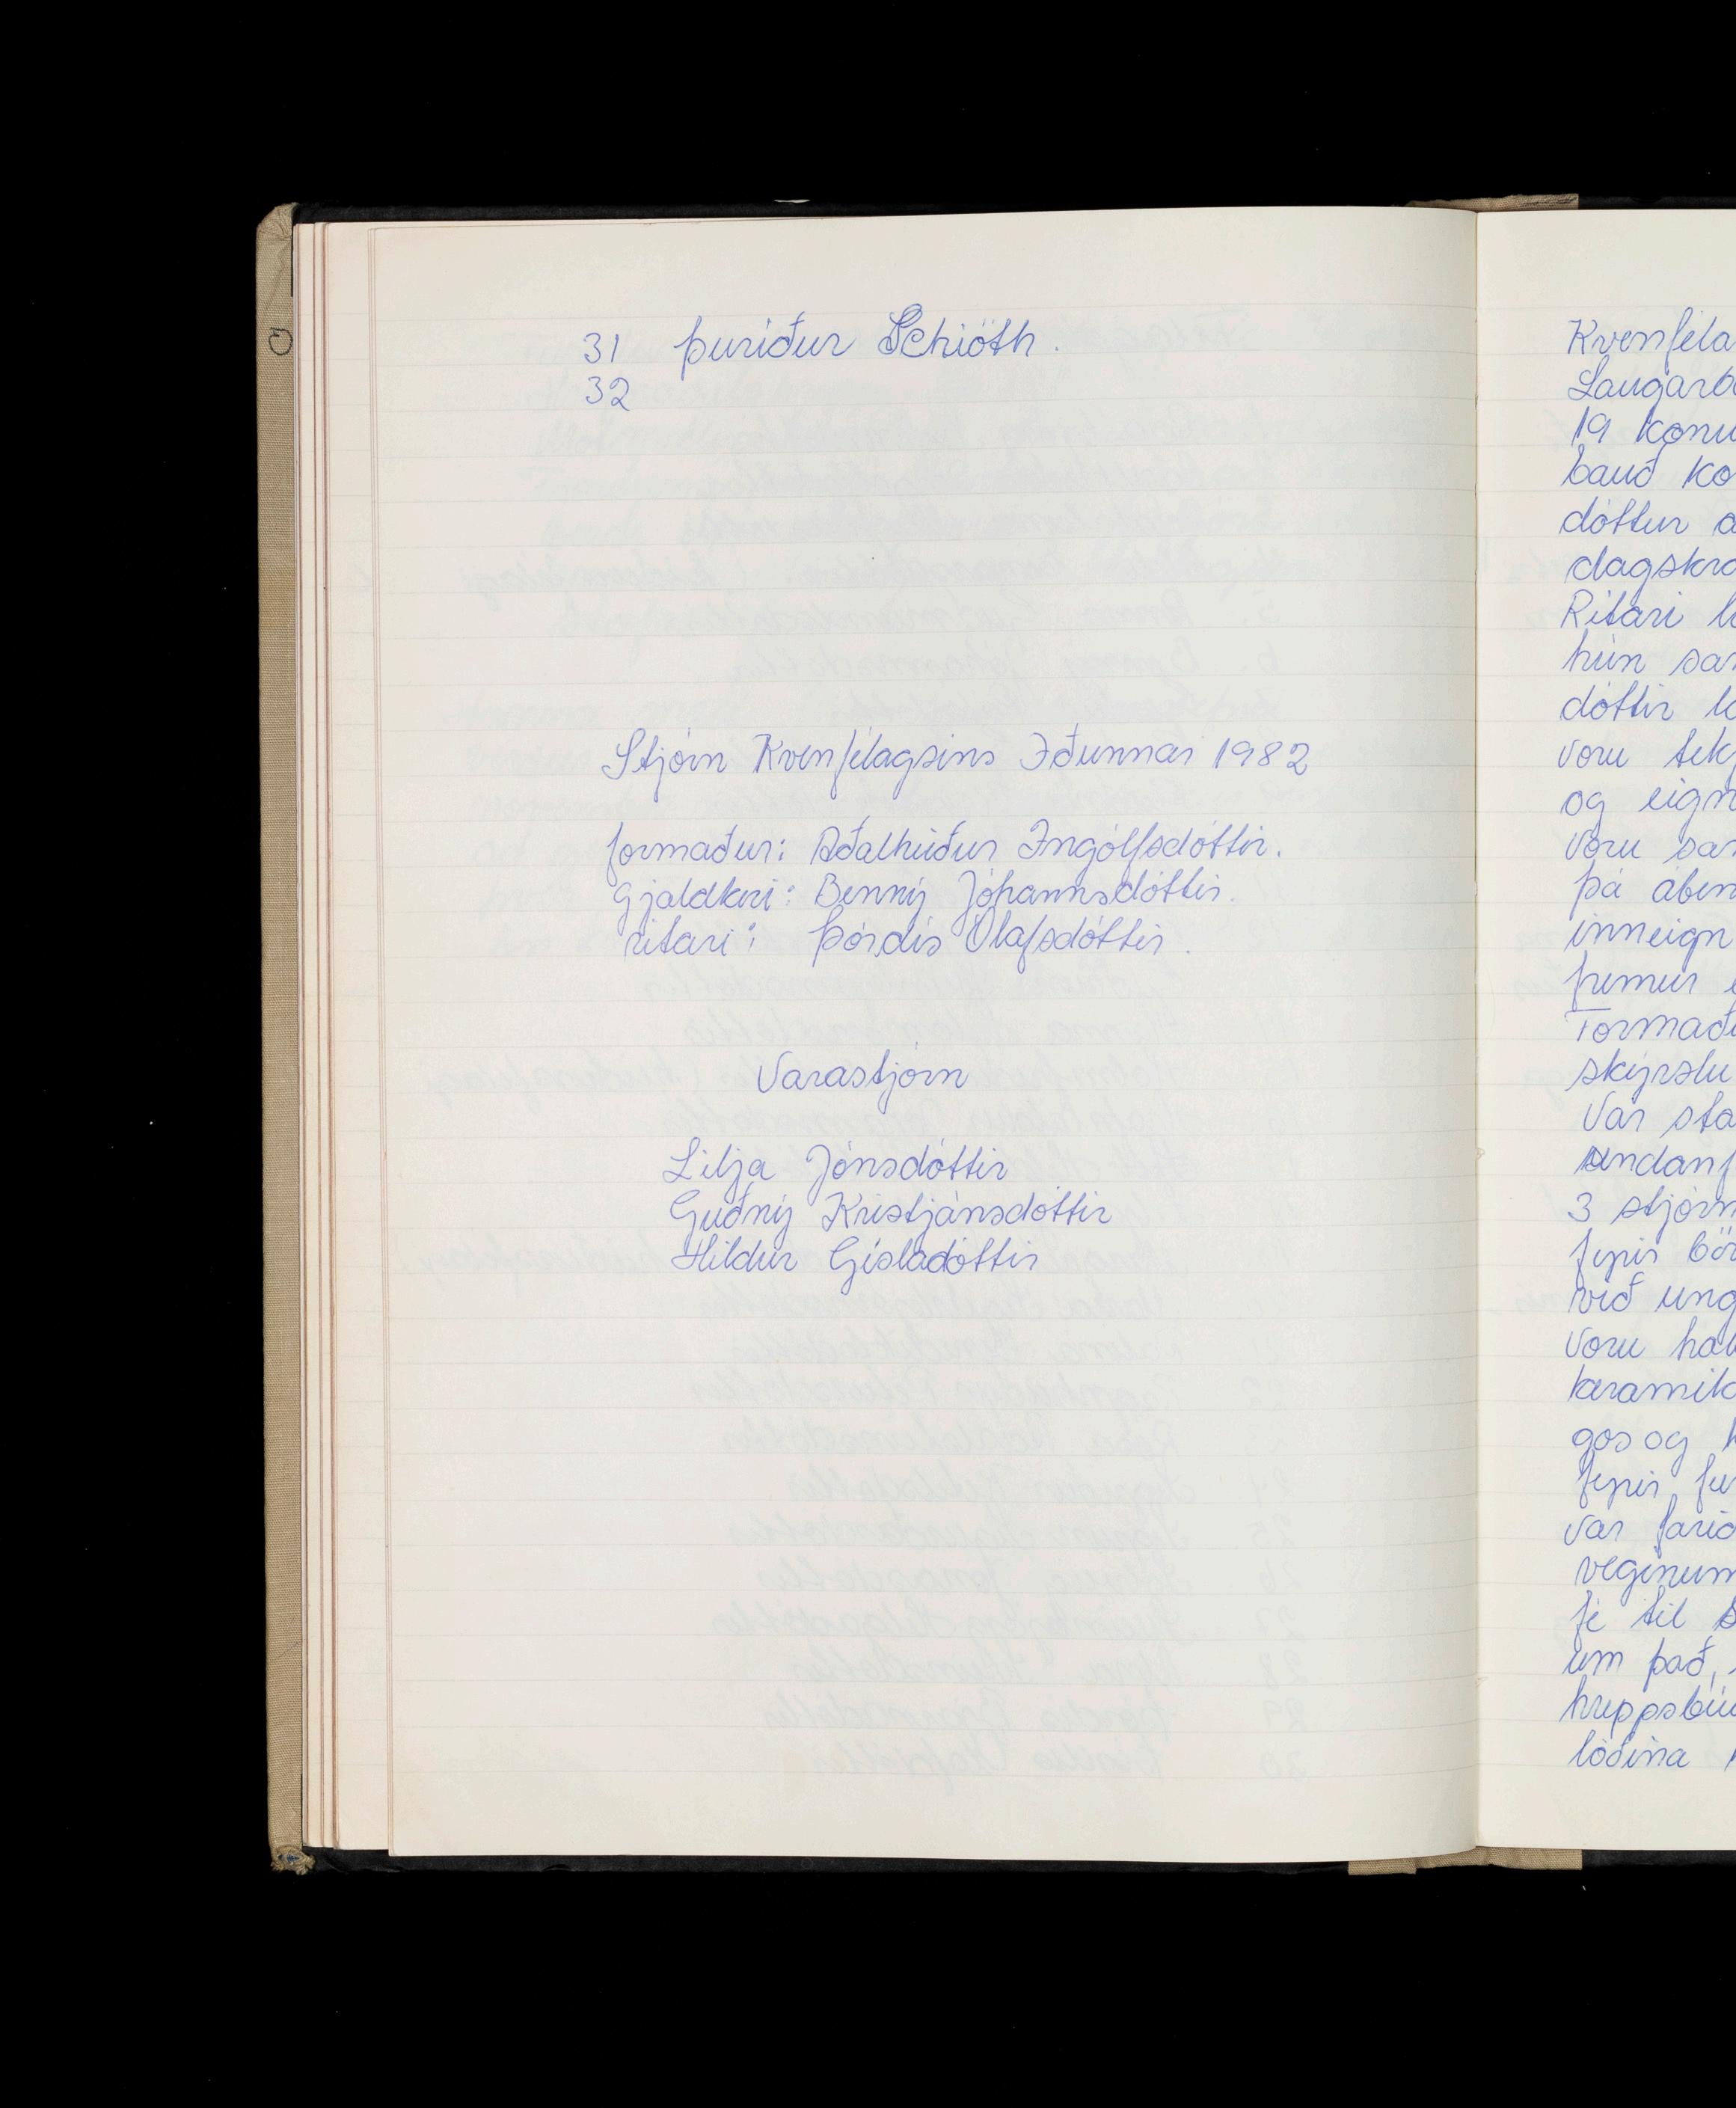 31 Þuríður Schiöth.
32
Stjórn Kvenfélagsins Iðunnar 1982
formaður: Aðalheiður Ingólfsdóttir.
gjaldkeri: Benný Jóhannsdóttir.
ritari: Þórdís Ólafsdóttir.
Varastjórn
Lilja Jónsdóttir
Guðný Kristjánsdóttir
Hildur Gísladóttir
Kvenféla
Laugarb
19 konu
bauð ko
dóttur a
dagskrá
Ritari l
hún sa
dóttir l
voru tek
og eign
voru sa
þá áben
inneign
fremur e
Formaðu
skýrslu
Var sta
undanf
3 stjórn
fyrir bör
við ung
voru hal
keramik
gos og k
fyrir fu
var farið
veginum
fé til
um það,
hreppsbú
lóðina